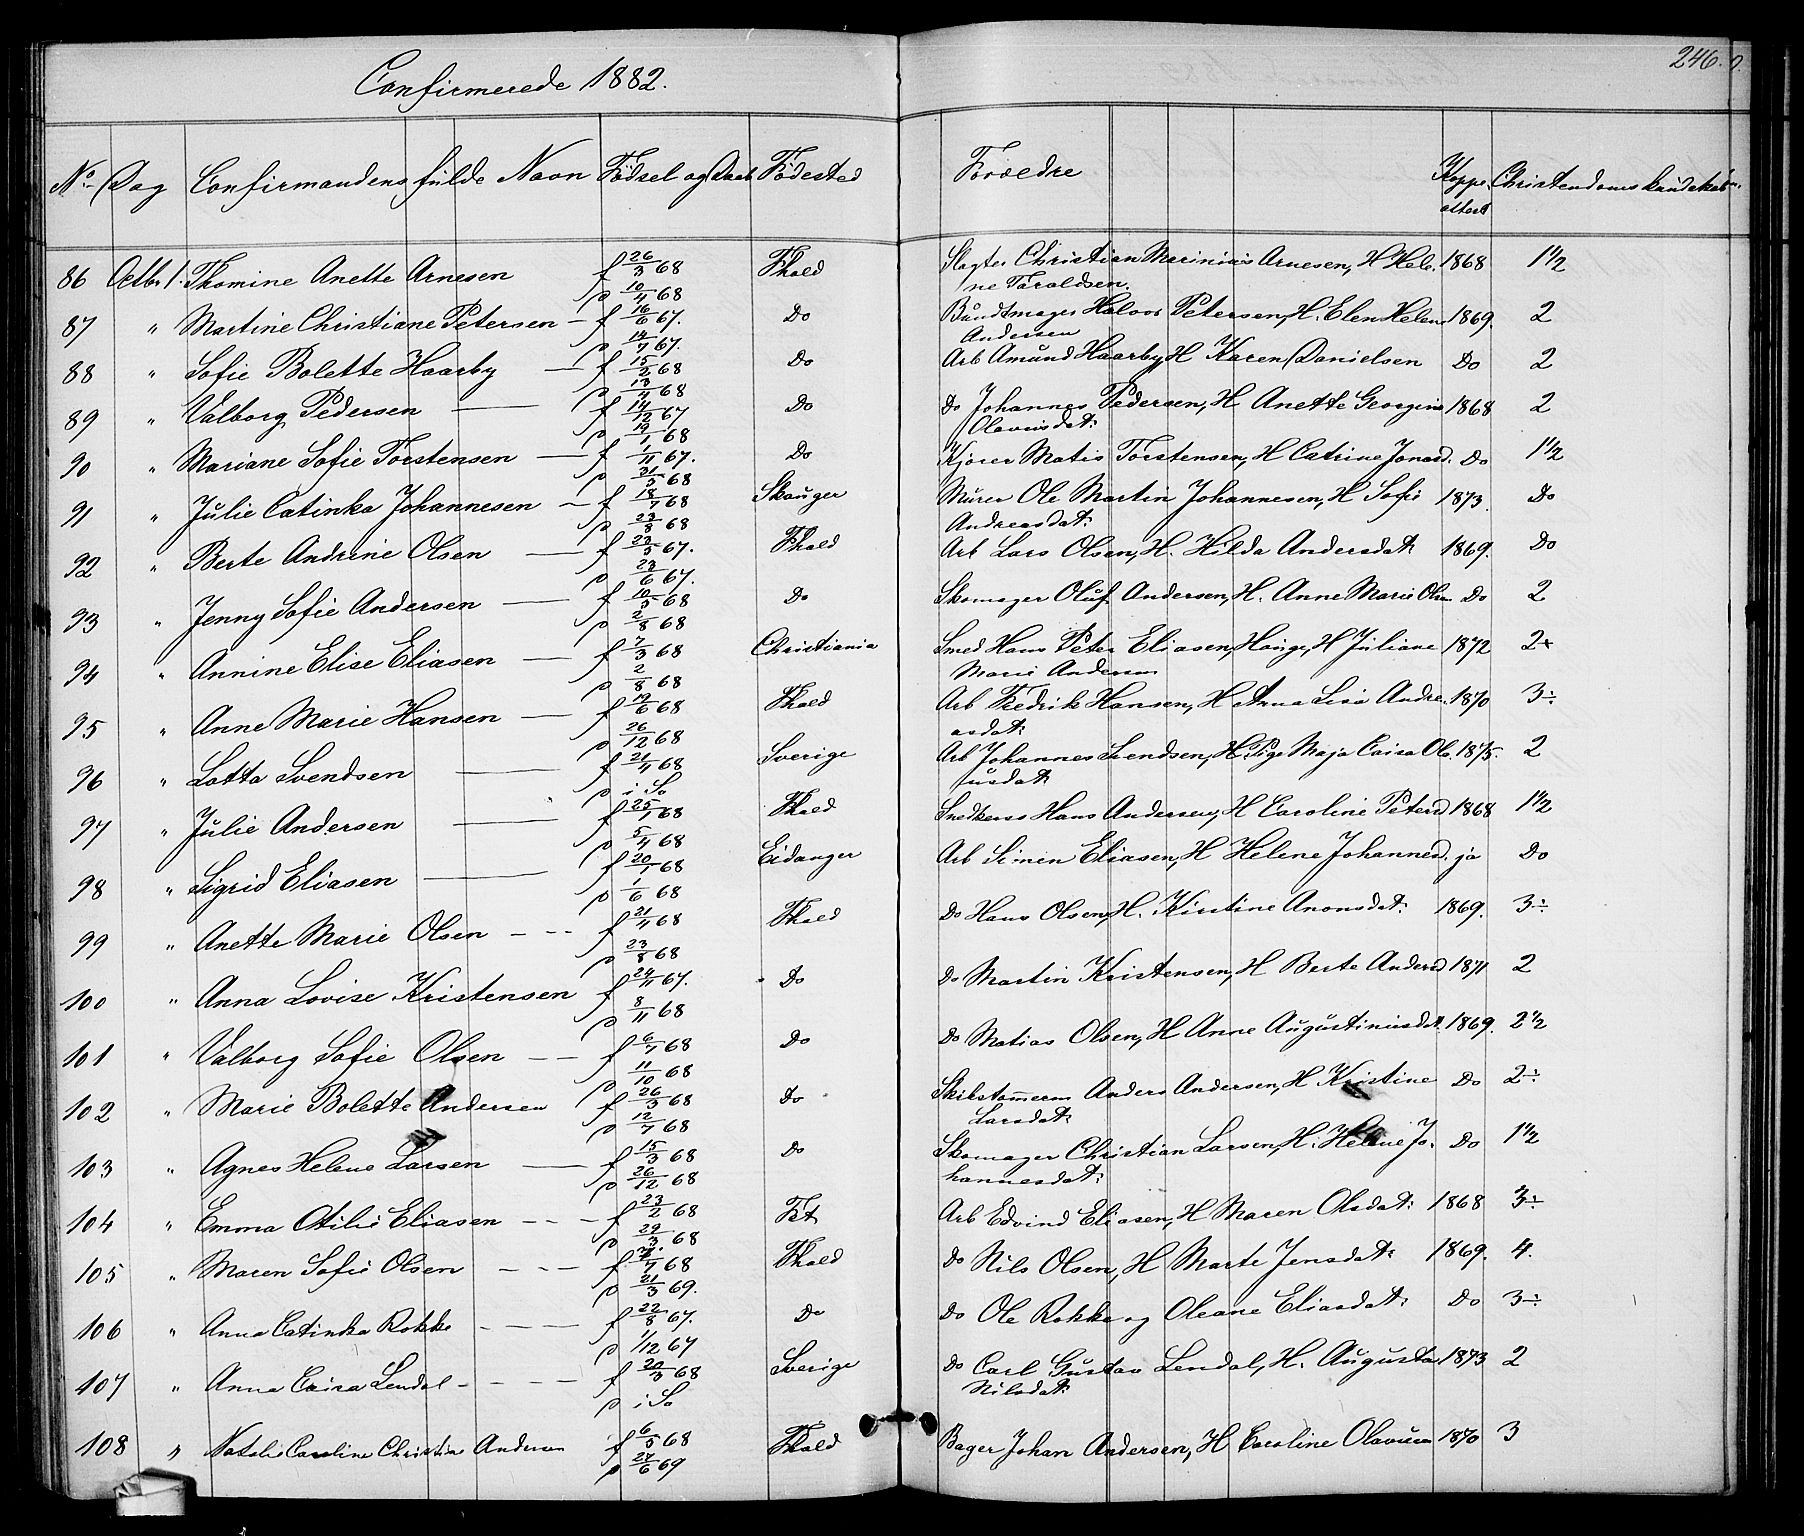 246.
Confirmerede 1882.
No Dag Confirmandens fulde Navn Fødsel og Daab Fødested Forældre Koppeattest Christendomskundskab
86 Octbr 1. Thomine Anette Arnesen f 26/3 68 Fhald Slagter Christian Marinius Arnesen, H Hele- 1868 1 1/2
p 10/4 68 ne Taraldsen.
87 " Martine Christiane Petersen - f 16/6 67. Do Bundtmager Halvor Petersen, H. Elen Helene 1869. 2
p 14/7 67. Andersen
88 " Sofie Bolette Haarby - f 15/2 68 Do Arb Amund Haarby, H Karen Danielsen Do 2
p 13/4 68
89 " Valborg Pedersen - f 14/12 67 Do Do Johannes Pedersen, H Anette Georgine 1868 2
p 19/1 68 Olavusdat:
90 " Mariane Sofie Torstensen - f 1/11 67. Do Kjører Matis Torstensen, H Catrine Jonasd. Do 1 1/2
p 31/5 68
91 " Julie Catinka Johannesen - f 18/7 68 Skauger Murer Ole Martin Johannesen, H Sofie 1873. Do
p 23/8 68 Andreasdat:
92 " Berte Andrine Olsen - f 23/5 67. Fhald Arb Lars Olsen, H. Hilda Andersdat: 1869. Do
p 23/6 67.
93 " Jenny Sofie Andersen - f 10/5 68 Do Skomager Oluf Andersen, H. Anne Marie Olsen Do 2
p 2/8 68
94 " Annine Elise Eliasen - f 7/3 68 Christiania Smed Hans Peter Eliasen, Hauge, H Juliane 1872 2+
p 2/8 68 Marie Andersen
95 " Anne Marie Hansen - f 19/6 68 Fhald Arb Fredrik Hansen, H Anna Lisa Andre- 1870 3÷
p 26/12 68 asdat:
96 " Lotta Svendsen - f 21/4 68 Sverige Arb Johannes Svendsen, H Pige Maja Caisa Ola- 1875. 2
p i So usdat:
97 " Julie Andersen - f 25/1 68 Fhald Snedkersv Hans Andersen, H Caroline Petersd 1868 1 1/2
p 5/4 68
98 " Sigrid Eliasen - f 20/1 68 Eidanger Arb Simen Eliasen, H Helene Johannesd. ja Do
p 1/6 68
99 " Anette Marie Olsen - - - f 21/4 68 Fhald Do Hans Olsen, H. Kirstine Aronsdat: 1869. 3÷
p 23/8 68
100 " Anna Lovise Kristensen f 24/11 67. Do Do Martin Kristensen, H Berte Andersd 1871 2
p 8/11 68
101 " Valborg Sofie Olsen - - f 6/7 68 Do Do Matias Olsen, H Anne Augustinusdat. 1869. 2 1/2
p 11/10 68
102 " Marie Bolette Andersen f 26/3 68 Do Skibstømerm Anders Andersen, H Kristine Do 2÷
p 12/7 68 Larsdat:
103 " Agnes Helene Larsen - f 15/3 68 Do Skomager Christian Larsen, H. Helene Jo- Do 1 1/2
p 26/12 68 hannesdat:
104 " Emma Otilie Eliasen - - - f 23/2 68 Fet Arb Edvind Eliasen, H Maren Olsdat: 1868 3÷
p 29/3 68
105 " Maren Sofie Olsen - - - f 68 Fhald Do Nils Olsen, H Marte Jensdat: 1869. 4.
p 21/3 69.
106 " Anna Catinka Rokke - - - f 22/8 67. Do Do Ole Rokke og Oleane Eliasdat: Do 3÷
p 1/12 67
107 " Anna Caisa Lendal - - - - f 20/3 68 Sverige Do Carl Gustav Lendal, H. Augusta 1873 2
p i So Nilsdat:
108 " Natalie Caroline Christine Andersen f 6/5 68 Fhald Bager Johan Andersen, H Caroline Olavusen 1870 3
p 27/6 69